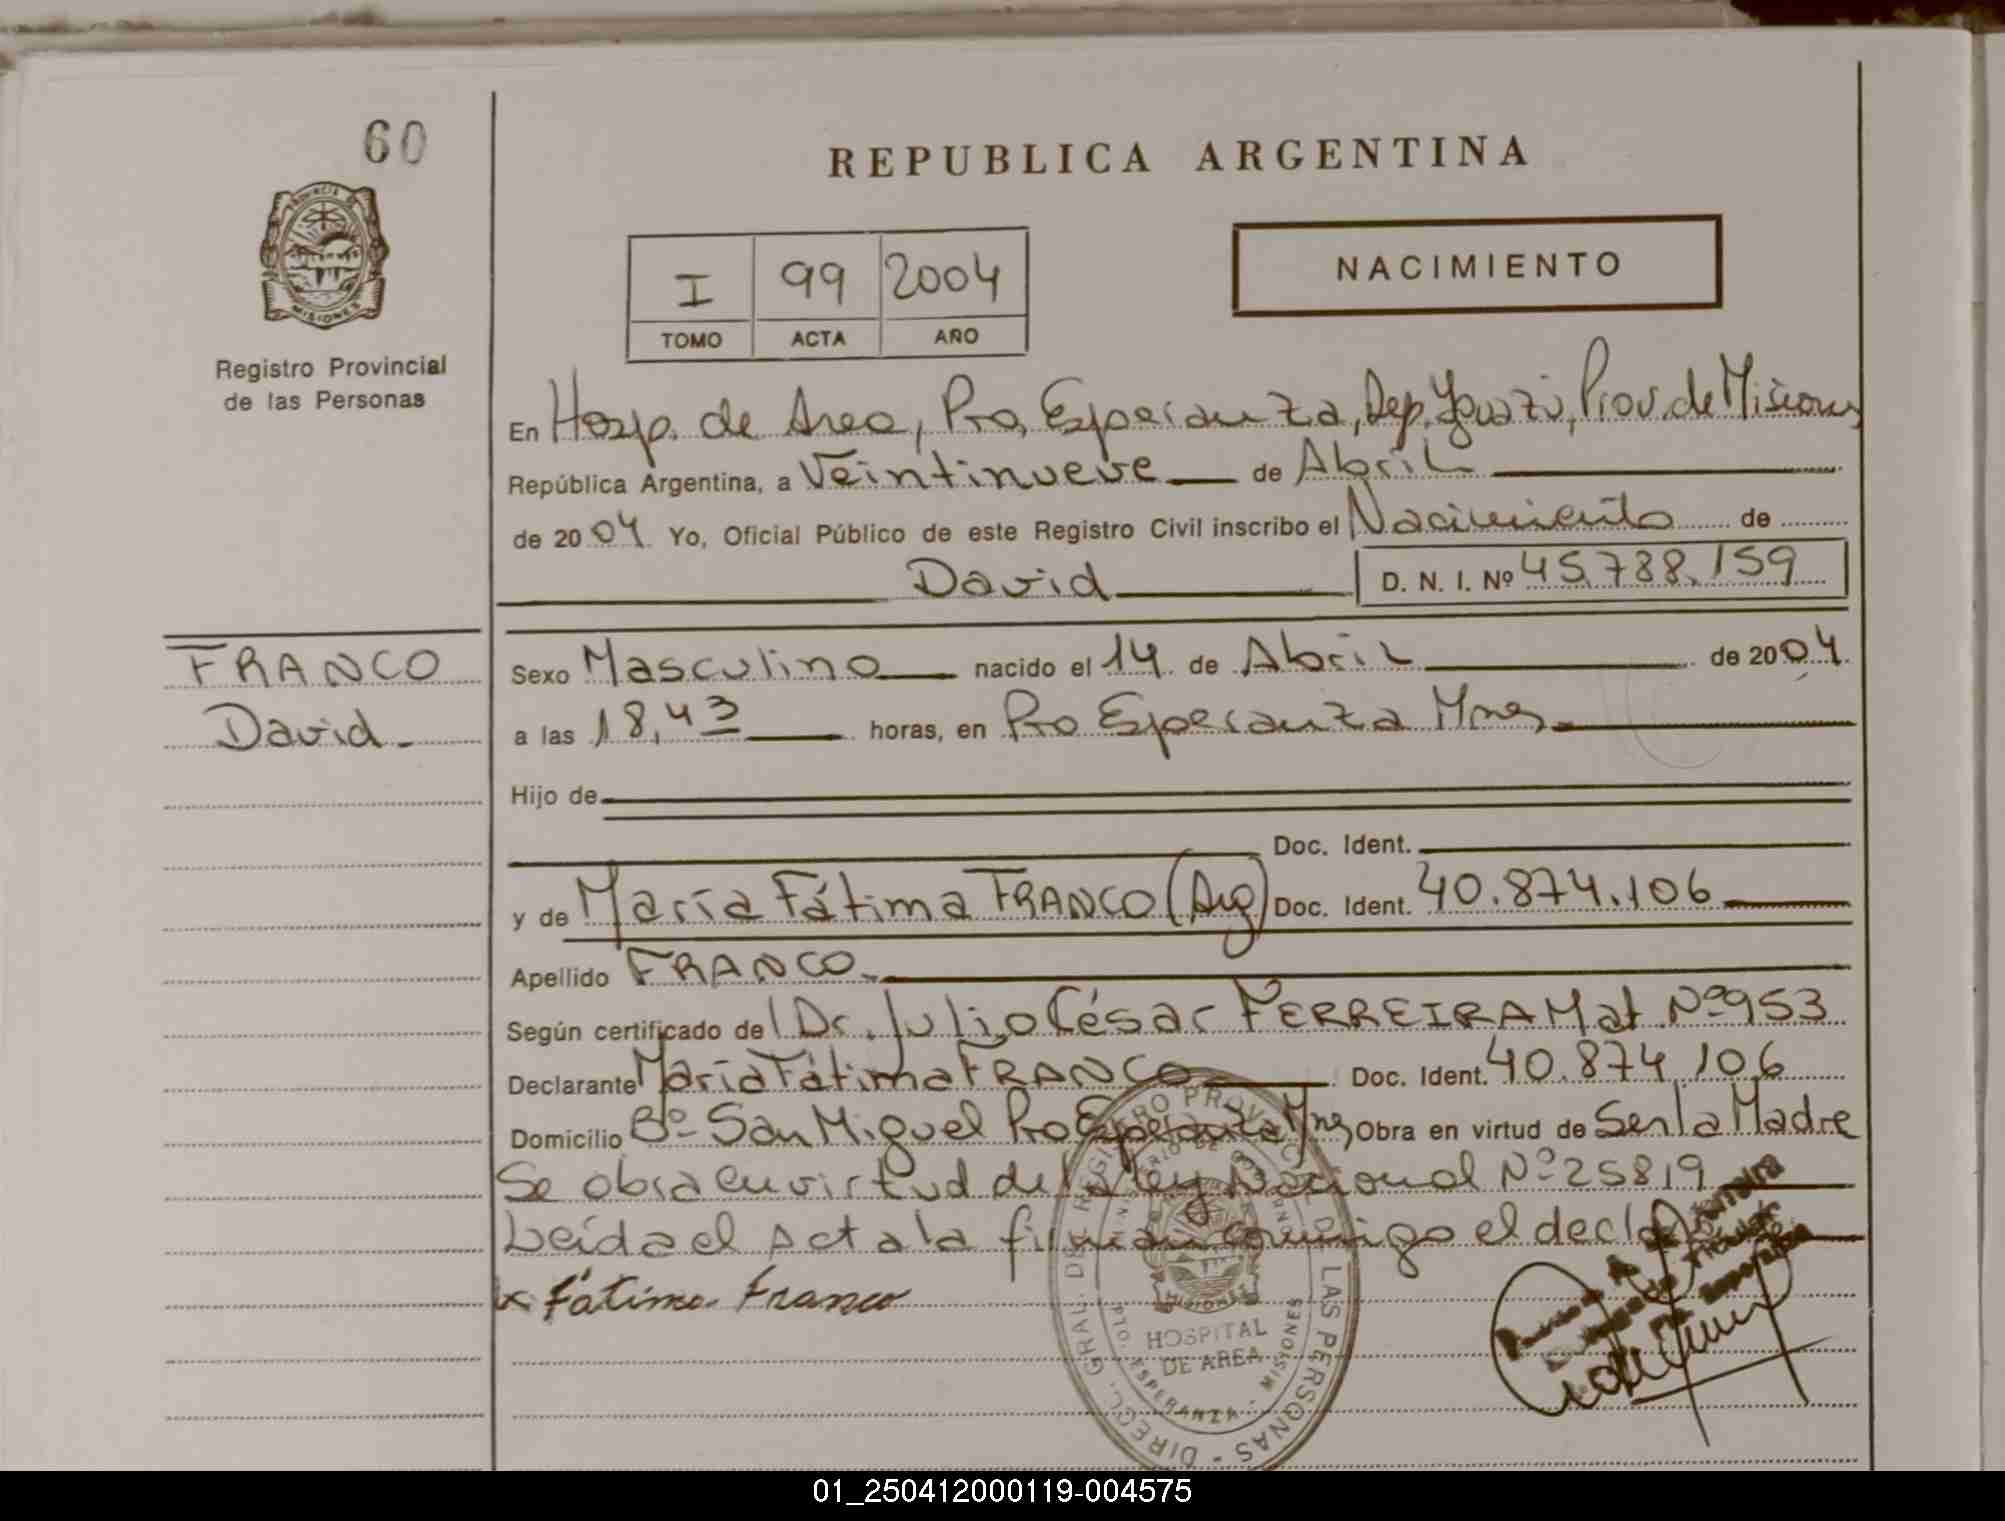 60
REPUBLICA ARGENTINA
PROVINCIA DE
MISIONES
Registro Provincial
de las Personas
I 99 2004
TOMO ACTA AÑO
NACIMIENTO
En Hosp. de Area, Pto, Esperanza, Dep. Iguazú, Prov. de Misiones
República Argentina, a Veintinueve de Abril
de 2004 Yo, Oficial Público de este Registro Civil inscribo el Nacimiento de
David D. N. I. Nº 45.788.159
FRANCO
David.-
Sexo Masculino nacido el 14 de Abril de 2004
a las 18,43 horas, en Pto Esperanza Mnes.
Hijo de
Doc. Ident.
y de María Fátima FRANCO (Arg) Doc. Ident. 40.874.106
Apellido FRANCO.
Según certificado del Dr. Julio César FERREIRA Mat Nº 953
Declarante María Fátima FRANCO Doc. Ident. 40.874.106
Domicilio Bº San Miguel Pto Esperanza Mnes Obra en virtud de Ser la Madre
Se obra en virtud de la ley Nacional Nº 25819
Leída el acta la firman conmigo el declar
x Fátima Franco
DIREC. GRAL. DE REGISTRO PROVINCIAL DE LAS PERSONAS -
MINISTERIO DE GOBIERNO
MISIONES
HOSPITAL
DE AREA
PTO. ESPERANZA - MISIONES
Ferreira
Titular
Pto. Esperanza
01_250412000119-004575